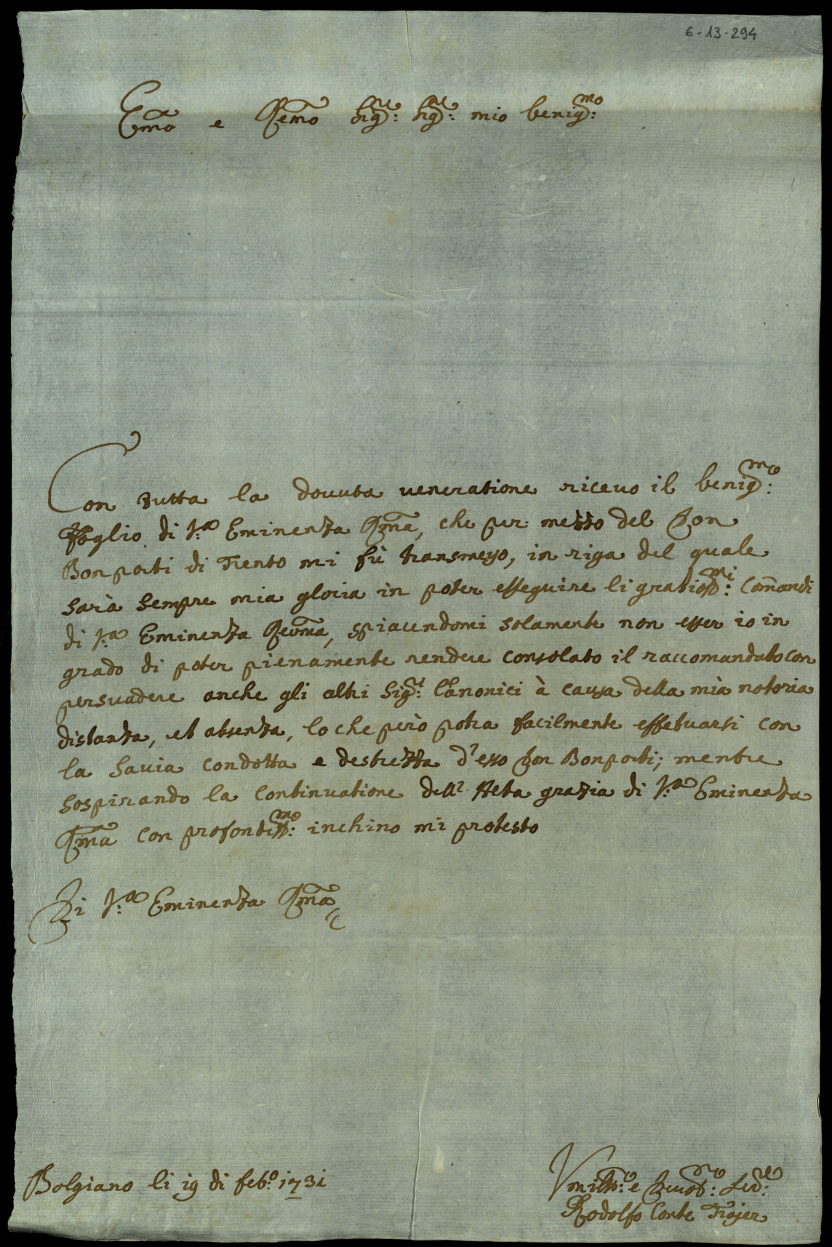 6-13-294
Em̃o e Rem̃o Sig:re Sig:re mio benig:mo
Con tutta la douuta ueneratione riceuo il benig:mo
foglio di V:ra Eminenza Rm̃a, che per mezzo del Don
Bonporti di Trento mi fù transmesso, in riga del quale
sarà sempre mia gloria in poter esseguire li gratiosis:mi com̃andi
di V:ra Eminenza Reuma, spiacendomi solamente non esser io in
grado di poter pienamente rendere consolato il raccomandato con
persuadere anche gli altri Sig:ri Canonici à causa della mia notoria
distanza, et absenza, lo che però potra facilmente effetuarsi con
la sauia condotta e destrezza d'esso Don Bonporti; mentre
sospirando la continuatione dell' Alta grazia di V:ra Eminenza
Rm̃a con profondis:mo inchino mi protesto
Di V:ra Eminenza Rm̃a
Bolgiano li 19 di feb:o 1731
Vmilis:o e Deuot:mo Ser:re
Rodolfo Conte Trojer